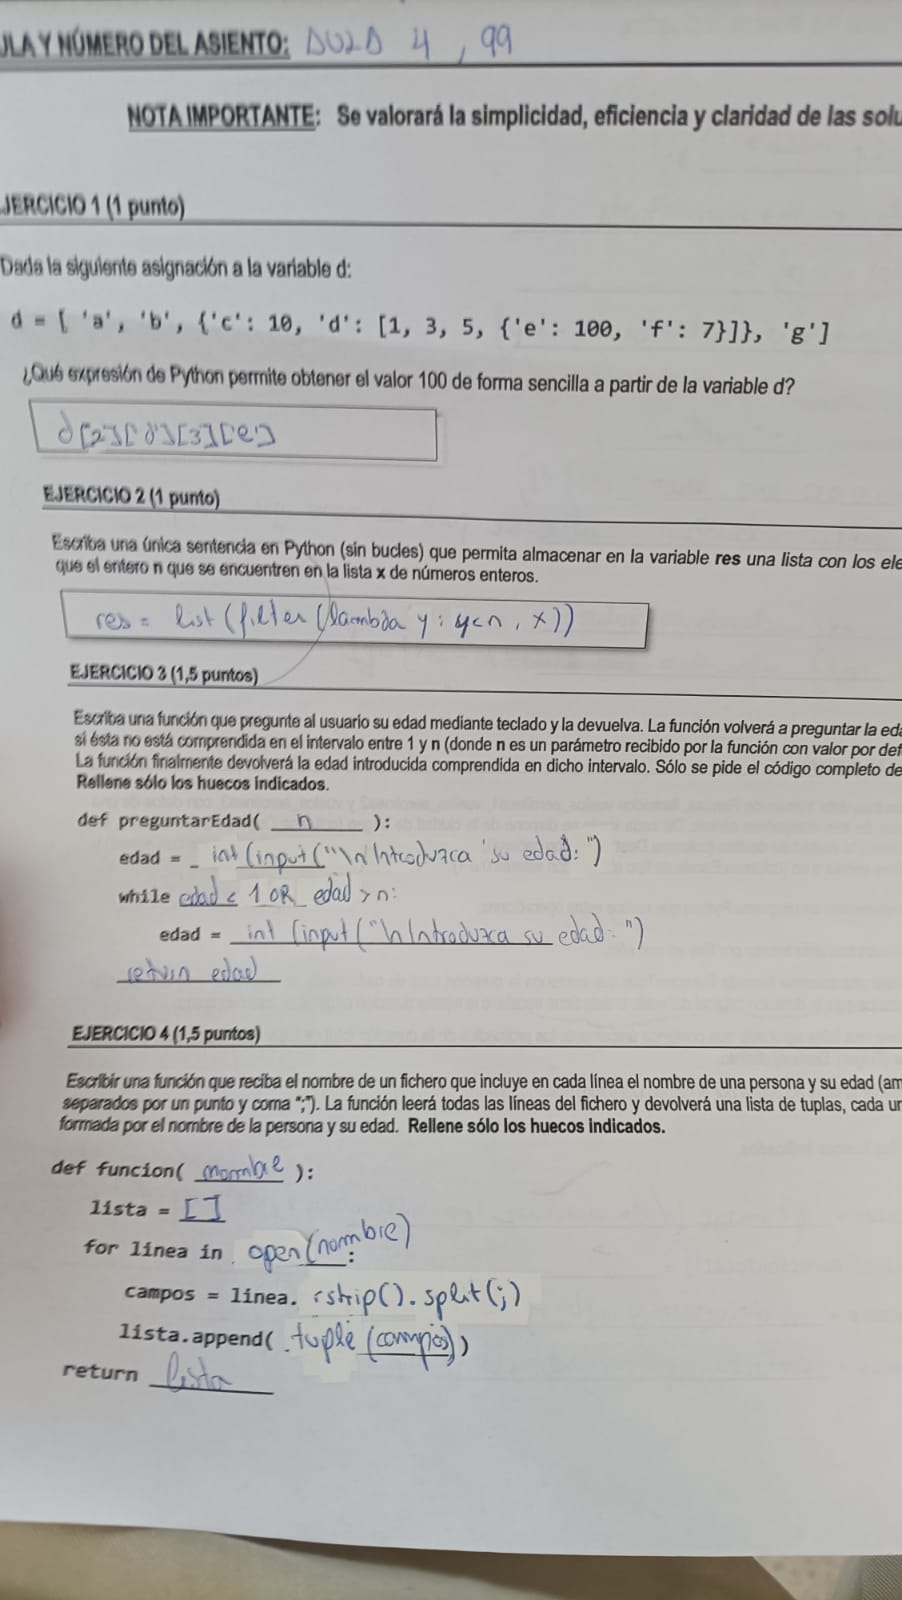 ULA Y NÚMERO DEL ASIENTO: AULA 4 , 99
NOTA IMPORTANTE: Se valorará la simplicidad, eficiencia y claridad de las solu
JERCICIO 1 (1 punto)
Dada la siguiente asignación a la variable d:
d = [ 'a', 'b', {'c': 10, 'd': [1, 3, 5, {'e': 100, 'f': 7}]}, 'g']
¿Qué expresión de Python permite obtener el valor 100 de forma sencilla a partir de la variable d?
d[2]['d'][3]['e']
EJERCICIO 2 (1 punto)
Escriba una única sentencia en Python (sin bucles) que permita almacenar en la variable res una lista con los ele
que el entero n que se encuentren en la lista x de números enteros.
res = list(filter(lambda y: y<n, x))
EJERCICIO 3 (1,5 puntos)
Escriba una función que pregunte al usuario su edad mediante teclado y la devuelva. La función volverá a preguntar la eda
si ésta no está comprendida en el intervalo entre 1 y n (donde n es un parámetro recibido por la función con valor por def
La función finalmente devolverá la edad introducida comprendida en dicho intervalo. Sólo se pide el código completo de
Rellene sólo los huecos indicados.
def preguntarEdad( n ):
edad = int(input("\n Introduzca su edad: ")
while edad < 1 OR edad > n:
edad = int(input("\n Introduzca su edad: ")
return edad
EJERCICIO 4 (1,5 puntos)
Escribir una función que reciba el nombre de un fichero que incluye en cada línea el nombre de una persona y su edad (am
separados por un punto y coma ";"). La función leerá todas las líneas del fichero y devolverá una lista de tuplas, cada un
formada por el nombre de la persona y su edad. Rellene sólo los huecos indicados.
def funcion( nombre ):
lista = []
for linea in open(nombre) :
campos = linea. rstrip().split(;)
lista.append( tuple(campos))
return lista